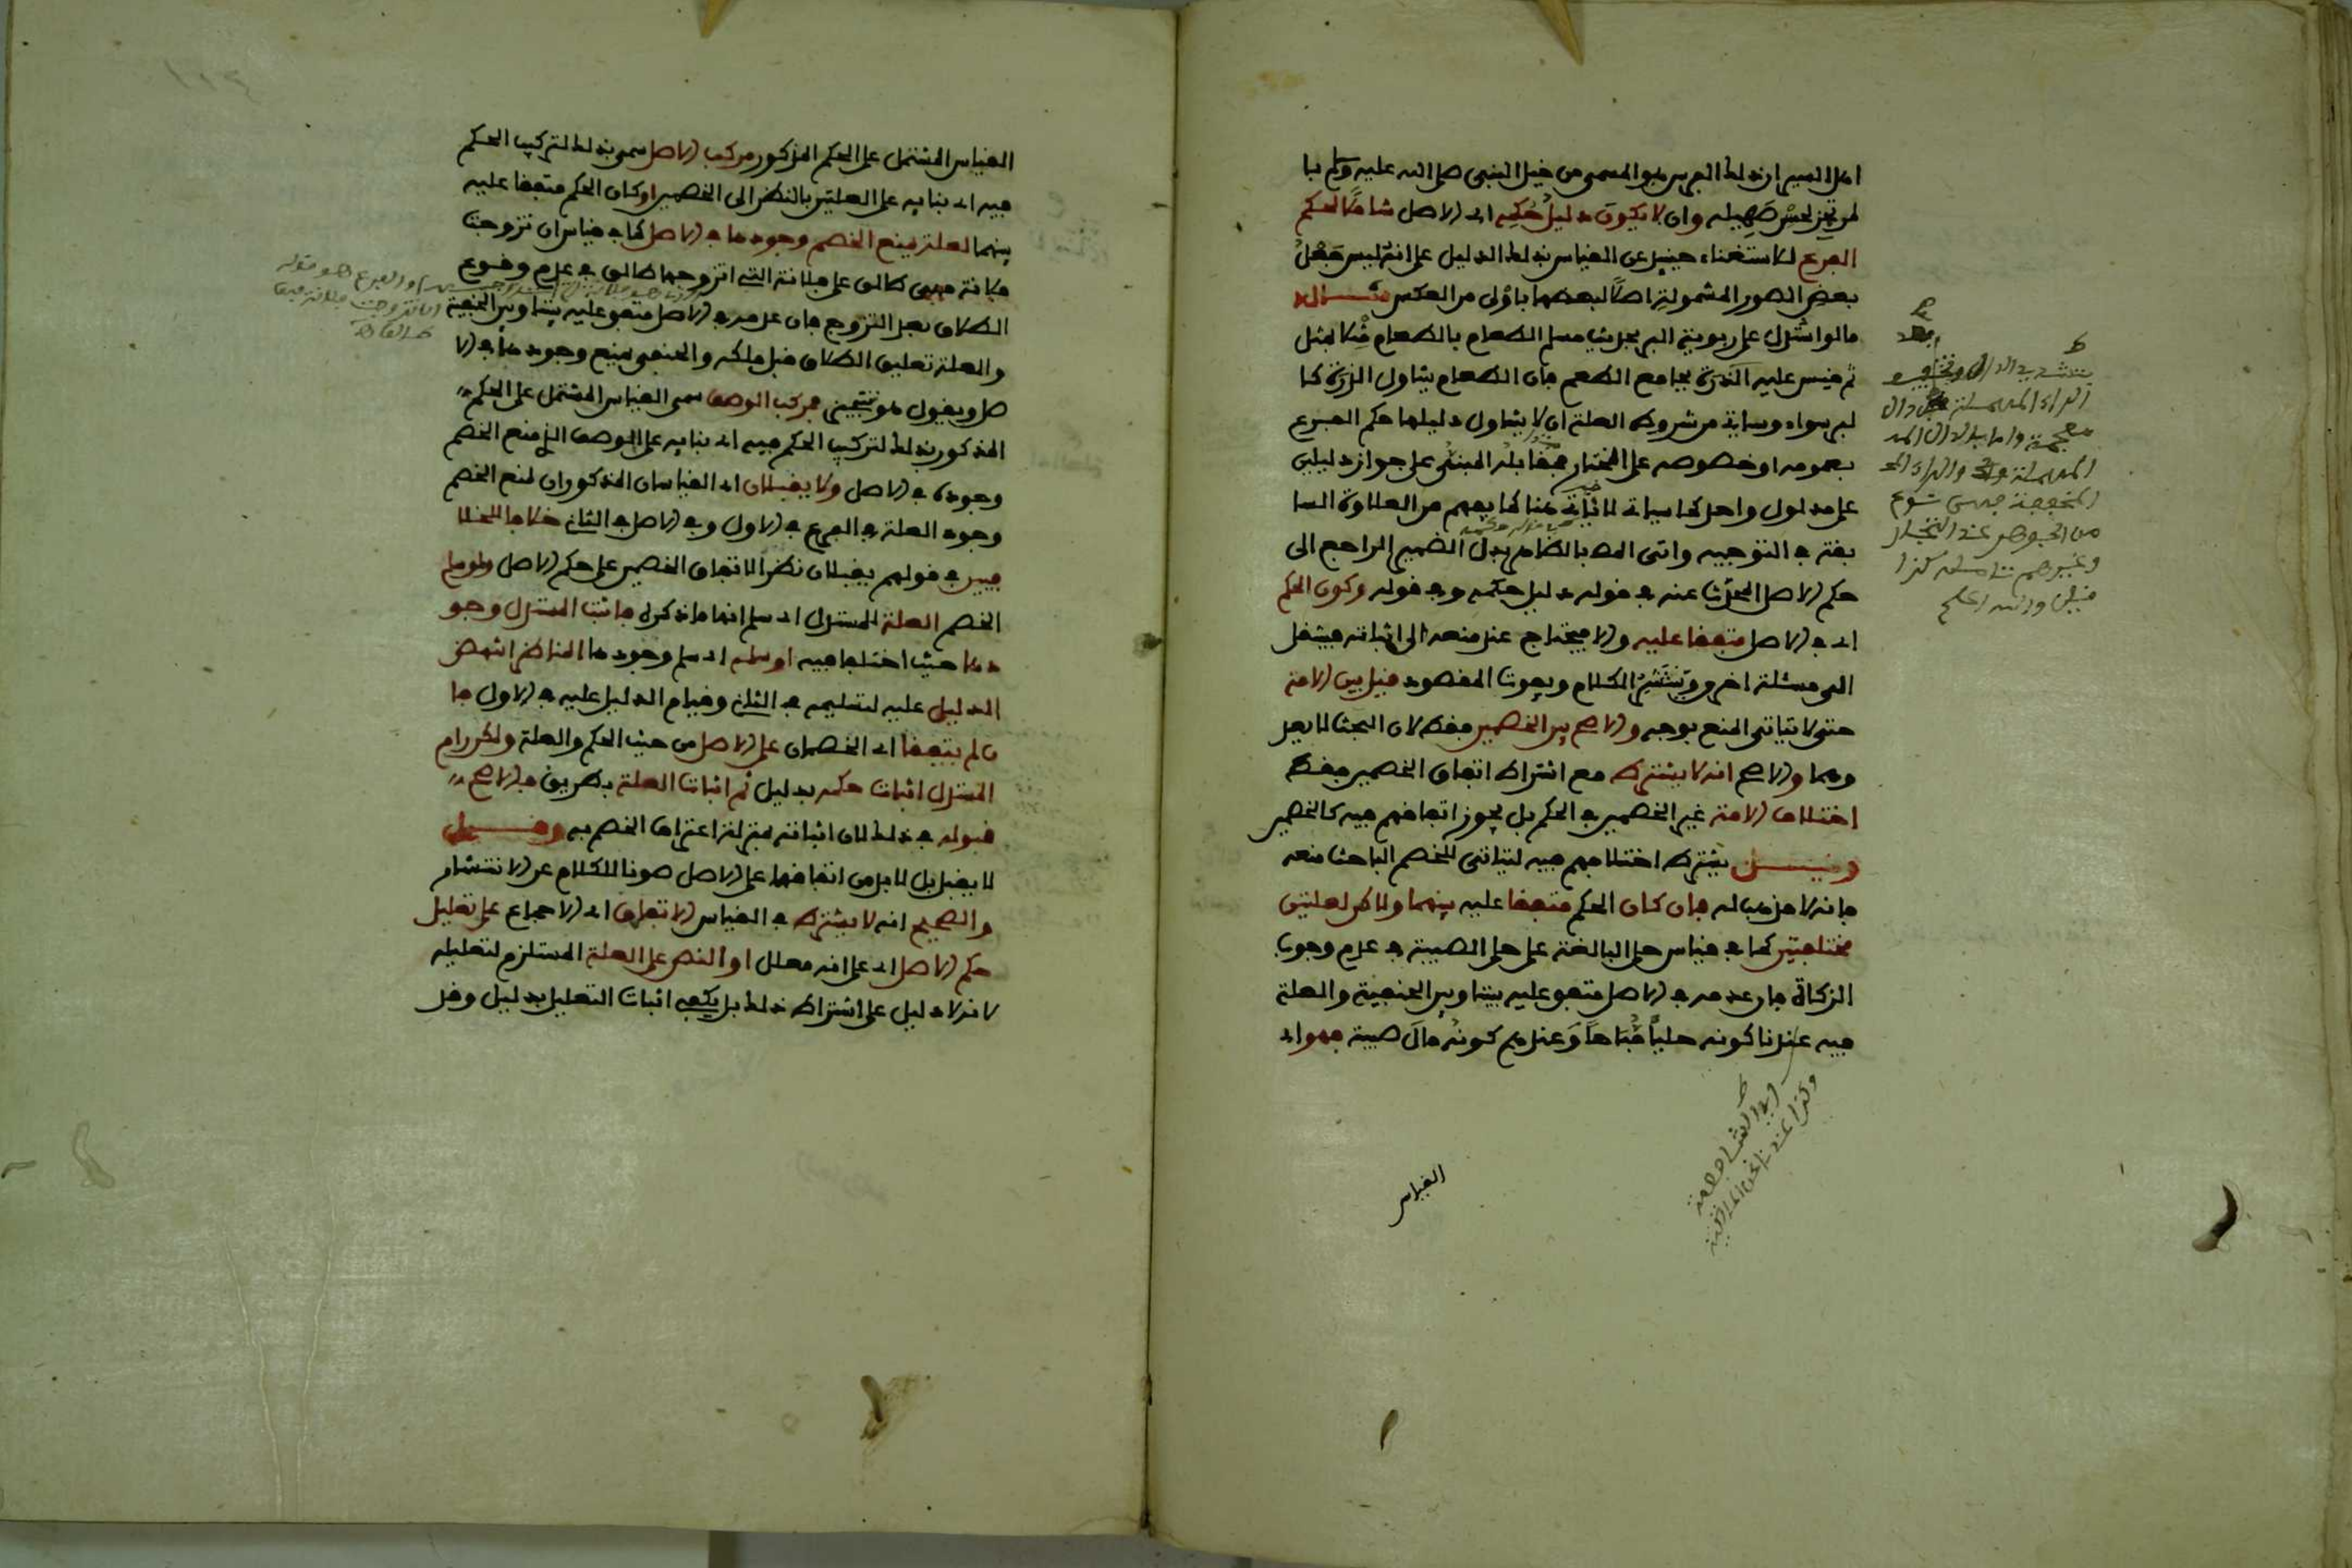 اهل السير ان ذلك الفرس هو المسمى من خيل النبي صلى الله عليه وسلم با
لمرتجز لحسن صهيله وان لا يكون دليل حكمه اى الاصل شاملا لحكم
الفرع للاستغناء حينئذ عن القياس بذلك الدليل على انه ليس جعل
بعض الصور المشمولة اصلا لبعضها باولى من العكس مثاله
ما لو استدل على ربوية البر بحديث مسلم الطعام بالطعام مثلا بمثل
ثم قيس عليه الذرة بجامع الطعم فان الطعام يتناول الذرة كا
لبر سواء وسياتى من شروط العلة ان لا يتناول دليلها حكم الفرع
بعمومه او خصوصه على المختار فمقابله المبني على جواز دليلين
على مدلول واحد كما سياتى لا ياتى هنا كما يفهم من العلاوة السا
بقة في التوجيه واتى المص بالظاهر بدل الضمير الراجع الى
حكم الاصل المحدث عنه في قوله دليل حكمه وفي قوله وكون الحكم
اى في الاصل متفقا عليه والا فيحتاج عند منعه الى اثباته فينتقل
الى مسئلة اخرى وينتشر الكلام ويفوت المقصود قيل بين الامة
حتى لا يتاتى المنع بوجه والاصح بين الخصمين فقط لان البحث لا يعد
وهما والاصح انه لا يشترط مع اشتراط اتفاق الخصمين فقط
اختلاف الامة غير الخصمين في الحكم بل يجوز اتفاقهم فيه كالخصمين
وقيل يشترط اختلافهم فيه ليتاتى للخصم الباحث منعه
فانه لا مذهب له فان كان الحكم متفقا عليه بينهما ولاكن لعلتين
مختلفتين كما في قياس حلى البالغة على حلى الصبية في عدم وجوب
الزكاة فان عدمه في الاصل متفق عليه بيننا وبين الحنفية والعلة
فيه عندنا كونه حليا مباحا وعندهم كونه مال صبية فهو اى
بتشديد الدال
الراء المهملة
معجمة واما بالدال
المهملة والراء
المخففة فهى نوع
من الجوهر عند التجار
وغيرهم تامله كذا
قيل والله اعلم
اى الشافعية
وكذا عندنا المالكية
القياس
القياس المشتمل على الحكم المذكور مركب الاصل سمى بذلك لتركيب الحكم
فيه اى بنائه على العلتين بالنظر الى الخصمين او كان الحكم متفقا عليه
بينهما لعلة يمنع الخصم وجودها في الاصل كما في قياس ان تزوجت
فلانة فهى طالق على فلانة التى اتزوجها طالق في عدم وقوع
الطلاق بعد التزوج فان عدمه في الاصل متفق عليه بيننا وبين الحنفية
والعلة تعليق الطلاق قبل ملكه والحنفى يمنع وجودها في الا
صل ويقول هو تنجيز فمركب الوصف سمى القياس المشتمل على الحكم
المذكور بذلك لتركيب الحكم فيه اى بنائه على الوصف الذي منع الخصم
وجوده في الاصل ولا يقبلان اى القياسان المذكوران لمنع الخصم
وجود العلة في الفرع في الاول وفي الاصل في الثانى خلافا للخلا
فيين في قولهم يقبلان نظرا لاتفاق الخصمين على حكم الاصل ولو سلم
الخصم العلة للمستدل اى سلم انها ما ذكره فاثبت المستدل وجو
دها حيث اختلفا فيه او سلمه اى سلم وجودها المناظر انتهض
الدليل عليه لتسليمه في الثانى وقيام الدليل عليه في الاول فا
ن لم يتفقا اى الخصمان على الاصل من حيث الحكم والعلة ولكن رام
المستدل اثبات حكمه بدليل ثم اثبات العلة بطريق فالاصح
قبوله في ذلك لان اثباته بمنزلة اعتراف الخصم به وقيل
لا يقبل بل لا بد من اتفاقهما على الاصل صونا للكلام عن الانتشار
والصحيح انه لا يشترط في القياس الاتفاق اى الاجماع على تعليل
حكم الاصل اى على انه معلل او النص على العلة المستلزم لتعليله
لانه لا دليل على اشتراط ذلك بل يكفى اثبات التعليل بدليل وقد
والفرع هو قوله
ان تزوجت فلانة فهى
طالق